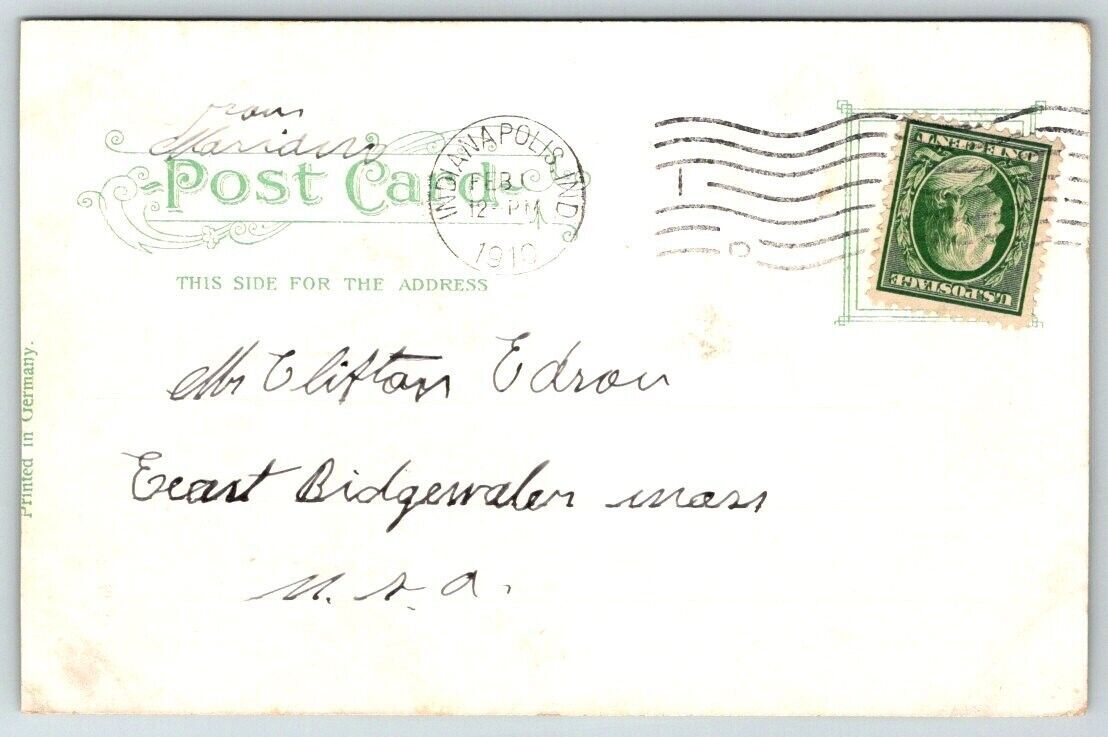 from
Post Card
THIS SIDE FOR THE ADDRESS
INDIANAPOLIS, IND.
FEB 1
12-PM
1910
ONE CENT
U.S. POSTAGE
Mr Clifton Edson
East Bidgewater mass
U. S. A.
Printed in Germany.